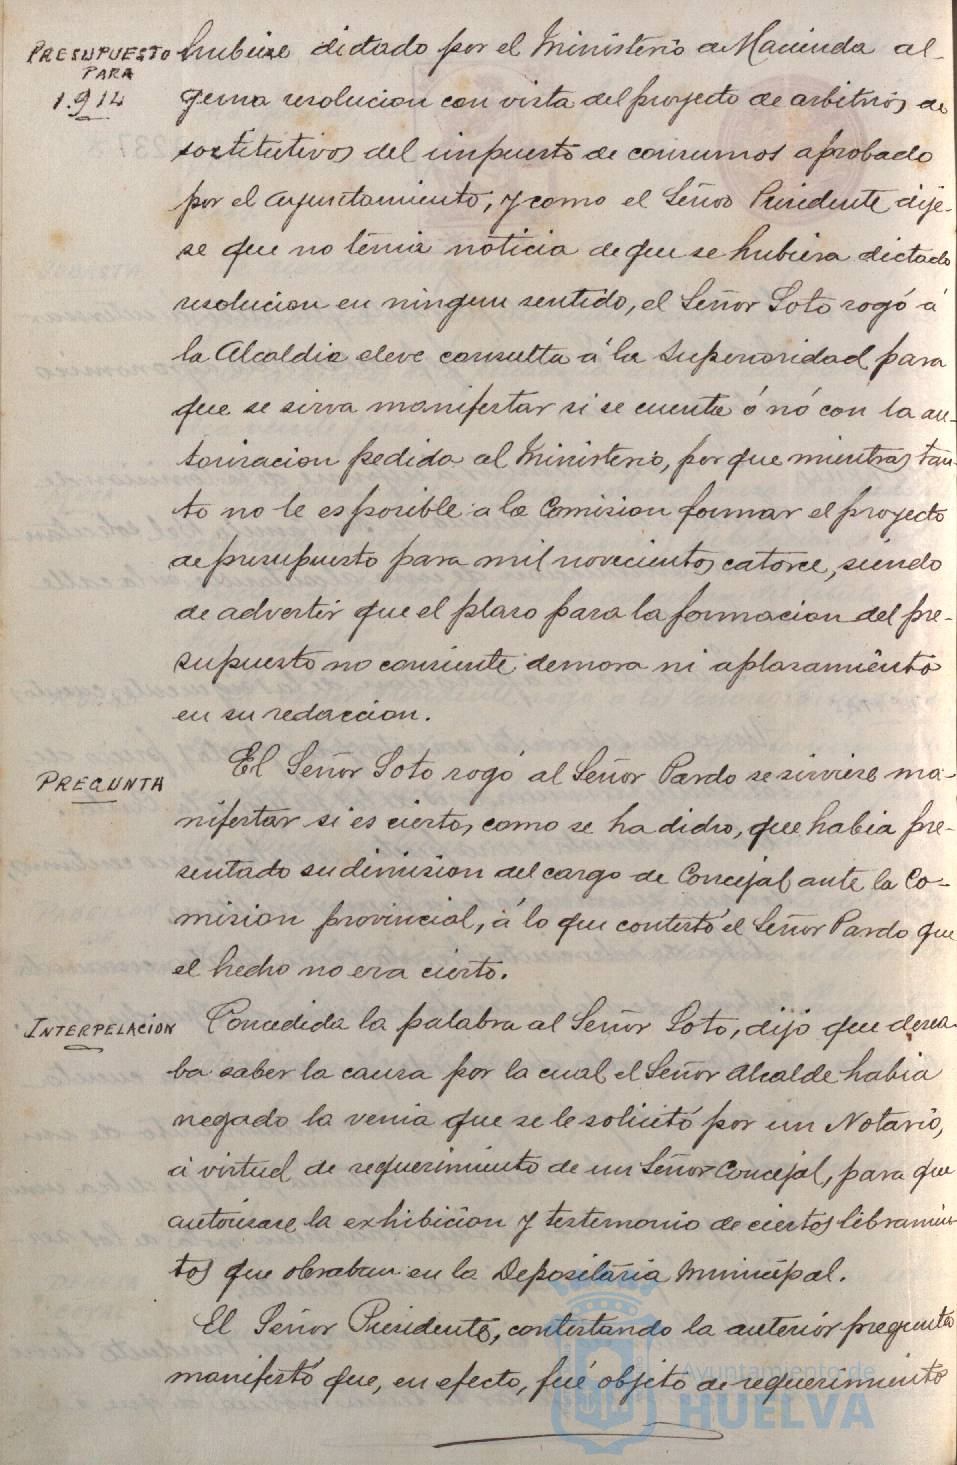 PRESUPUESTO
PARA
1.914
hubiese dictado por el Ministerio de Hacienda al-
guna resolucion con vista del proyecto de arbitrios de
sostitutivos del impuesto de consumos aprobado
por el Ayuntamiento, y como el Señor Presidente dije-
se que no tenia noticia de que se hubiera dictado
resolucion en ningun sentido, el Señor Soto rogó á
la Alcaldia eleve consulta á la Superioridad para
que se sirva manifestar si se cuenta ó nó con la au-
torisacion pedida al Ministerio, por que mientras tan-
to no le es posible a la Comision formar el proyecto
de presupuesto para mil novecientos catorce, siendo
de advertir que el plaso para la formacion del pre-
supuesto no consiente demora ni aplasamiento
en su redaccion.
PREGUNTA
El Señor Soto rogó al Señor Pardo se sirviese ma-
nifestar si es cierto, como se ha dicho, que habia pre-
sentado su dimision del cargo de Concejal ante la Co-
mision provincial, á lo que contestó el Señor Pardo que
el hecho no era cierto.
INTERPELACION
Concedida la palabra al Señor Soto, dijo que desea-
ba saber la causa por la cual el Señor Alcalde habia
negado la venia que se le solicitó por un Notario,
á virtud de requerimiento de un Señor Concejal, para que
autorisase la exhibicion y testimonio de ciertos libramien-
tos que obraban en la Depositaria Municipal.
El Señor Presidente, contestando la anterior pregunta
manifestó que, en efecto, fué objeto de requerimiento
Ayuntamiento de
HUELVA